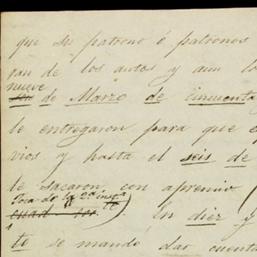 que su patrono ó patronos
ran de los autos y aun lo
nueve
de Marzo de cincuenta
le entregaron para que e
vios y hasta el seis de
le sacaron con apremio (
Toca do la 2ª inst.ª
). En diez y
te se mandó dar cuenta